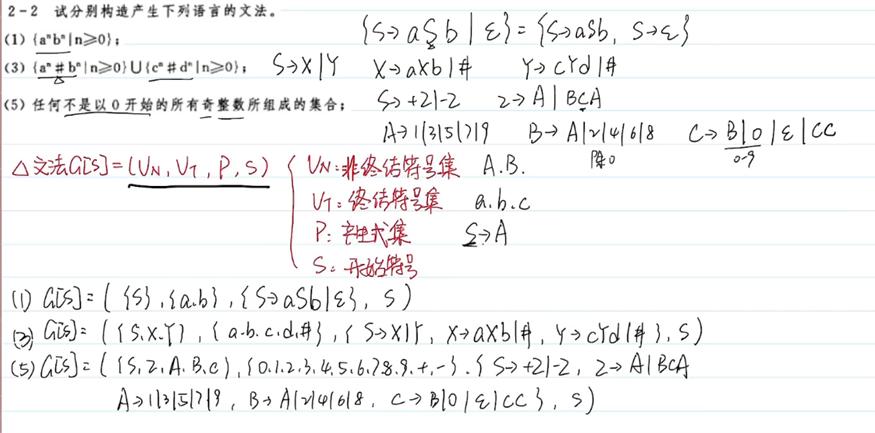 2-2 试分别构造产生下列语言的文法。
{S→aSb|ε}={S→aSb, S→ε}
(1) {aⁿbⁿ|n≥0};
(3) {aⁿ#bⁿ|n≥0}∪{cⁿ#dⁿ|n≥0}; S→X|Y X→aXb|# Y→cYd|#
(5) 任何不是以0开始的所有奇整数所组成的集合; S→+Z|-Z Z→A|BCA
A→1|3|5|7|9 B→A|2|4|6|8 C→B|0|ε|CC
除0 0-9
△文法G[S]=(U_N, U_T, P, S) { U_N:非终结符号集 A.B.
U_T:终结符号集 a.b.c
P:产生式集 S→A
S:开始符号
(1) G[S]=({S},{a.b},{S→aSb|ε}, S)
(3) G[S]=({S.X.Y},{a.b.c.d.#},{S→X|Y, X→aXb|#, Y→cYd|#}, S)
(5) G[S]=({S,Z,A.B.C},{0.1.2.3.4.5.6.7.8.9.+,-}.{S→+Z|-Z, Z→A|BCA
A→1|3|5|7|9, B→A|2|4|6|8, C→B|0|ε|CC}, S)